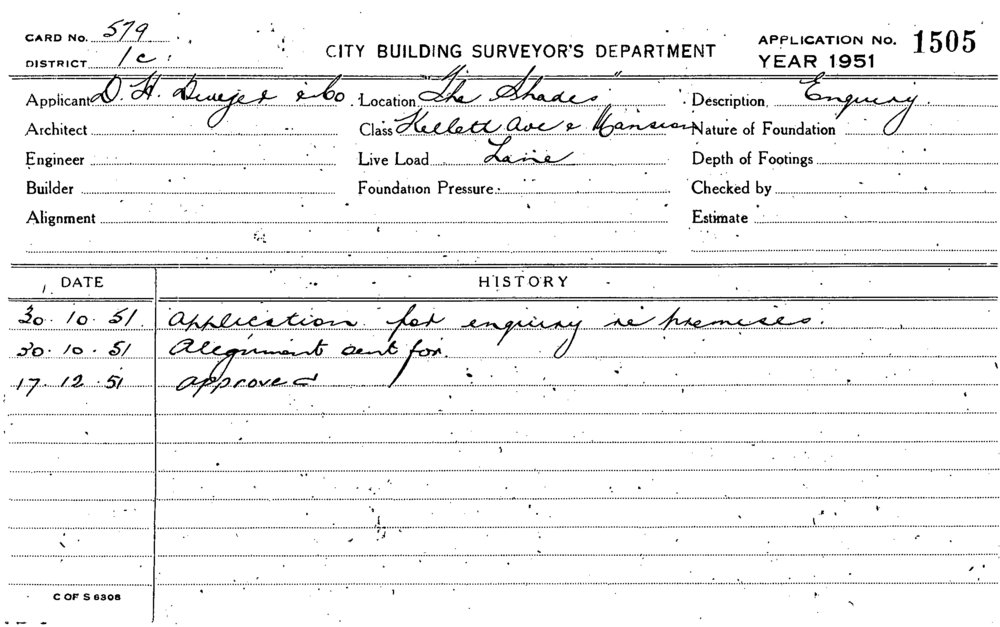 CARD No. 579
DISTRICT 1c
CITY BUILDING SURVEYOR'S DEPARTMENT
APPLICATION No. 1505
YEAR 1951
Applicant D. H. & Co Location "The Shades" Description Enquiry
Architect Class Kellett Ave & Mansion Nature of Foundation
Engineer Live Load Lane Depth of Footings
Builder Foundation Pressure Checked by
Alignment Estimate
DATE HISTORY
30.10.51 Application for enquiry re premises.
30.10.51 Alignment sent for
17.12.51 approved
C OF S 6308